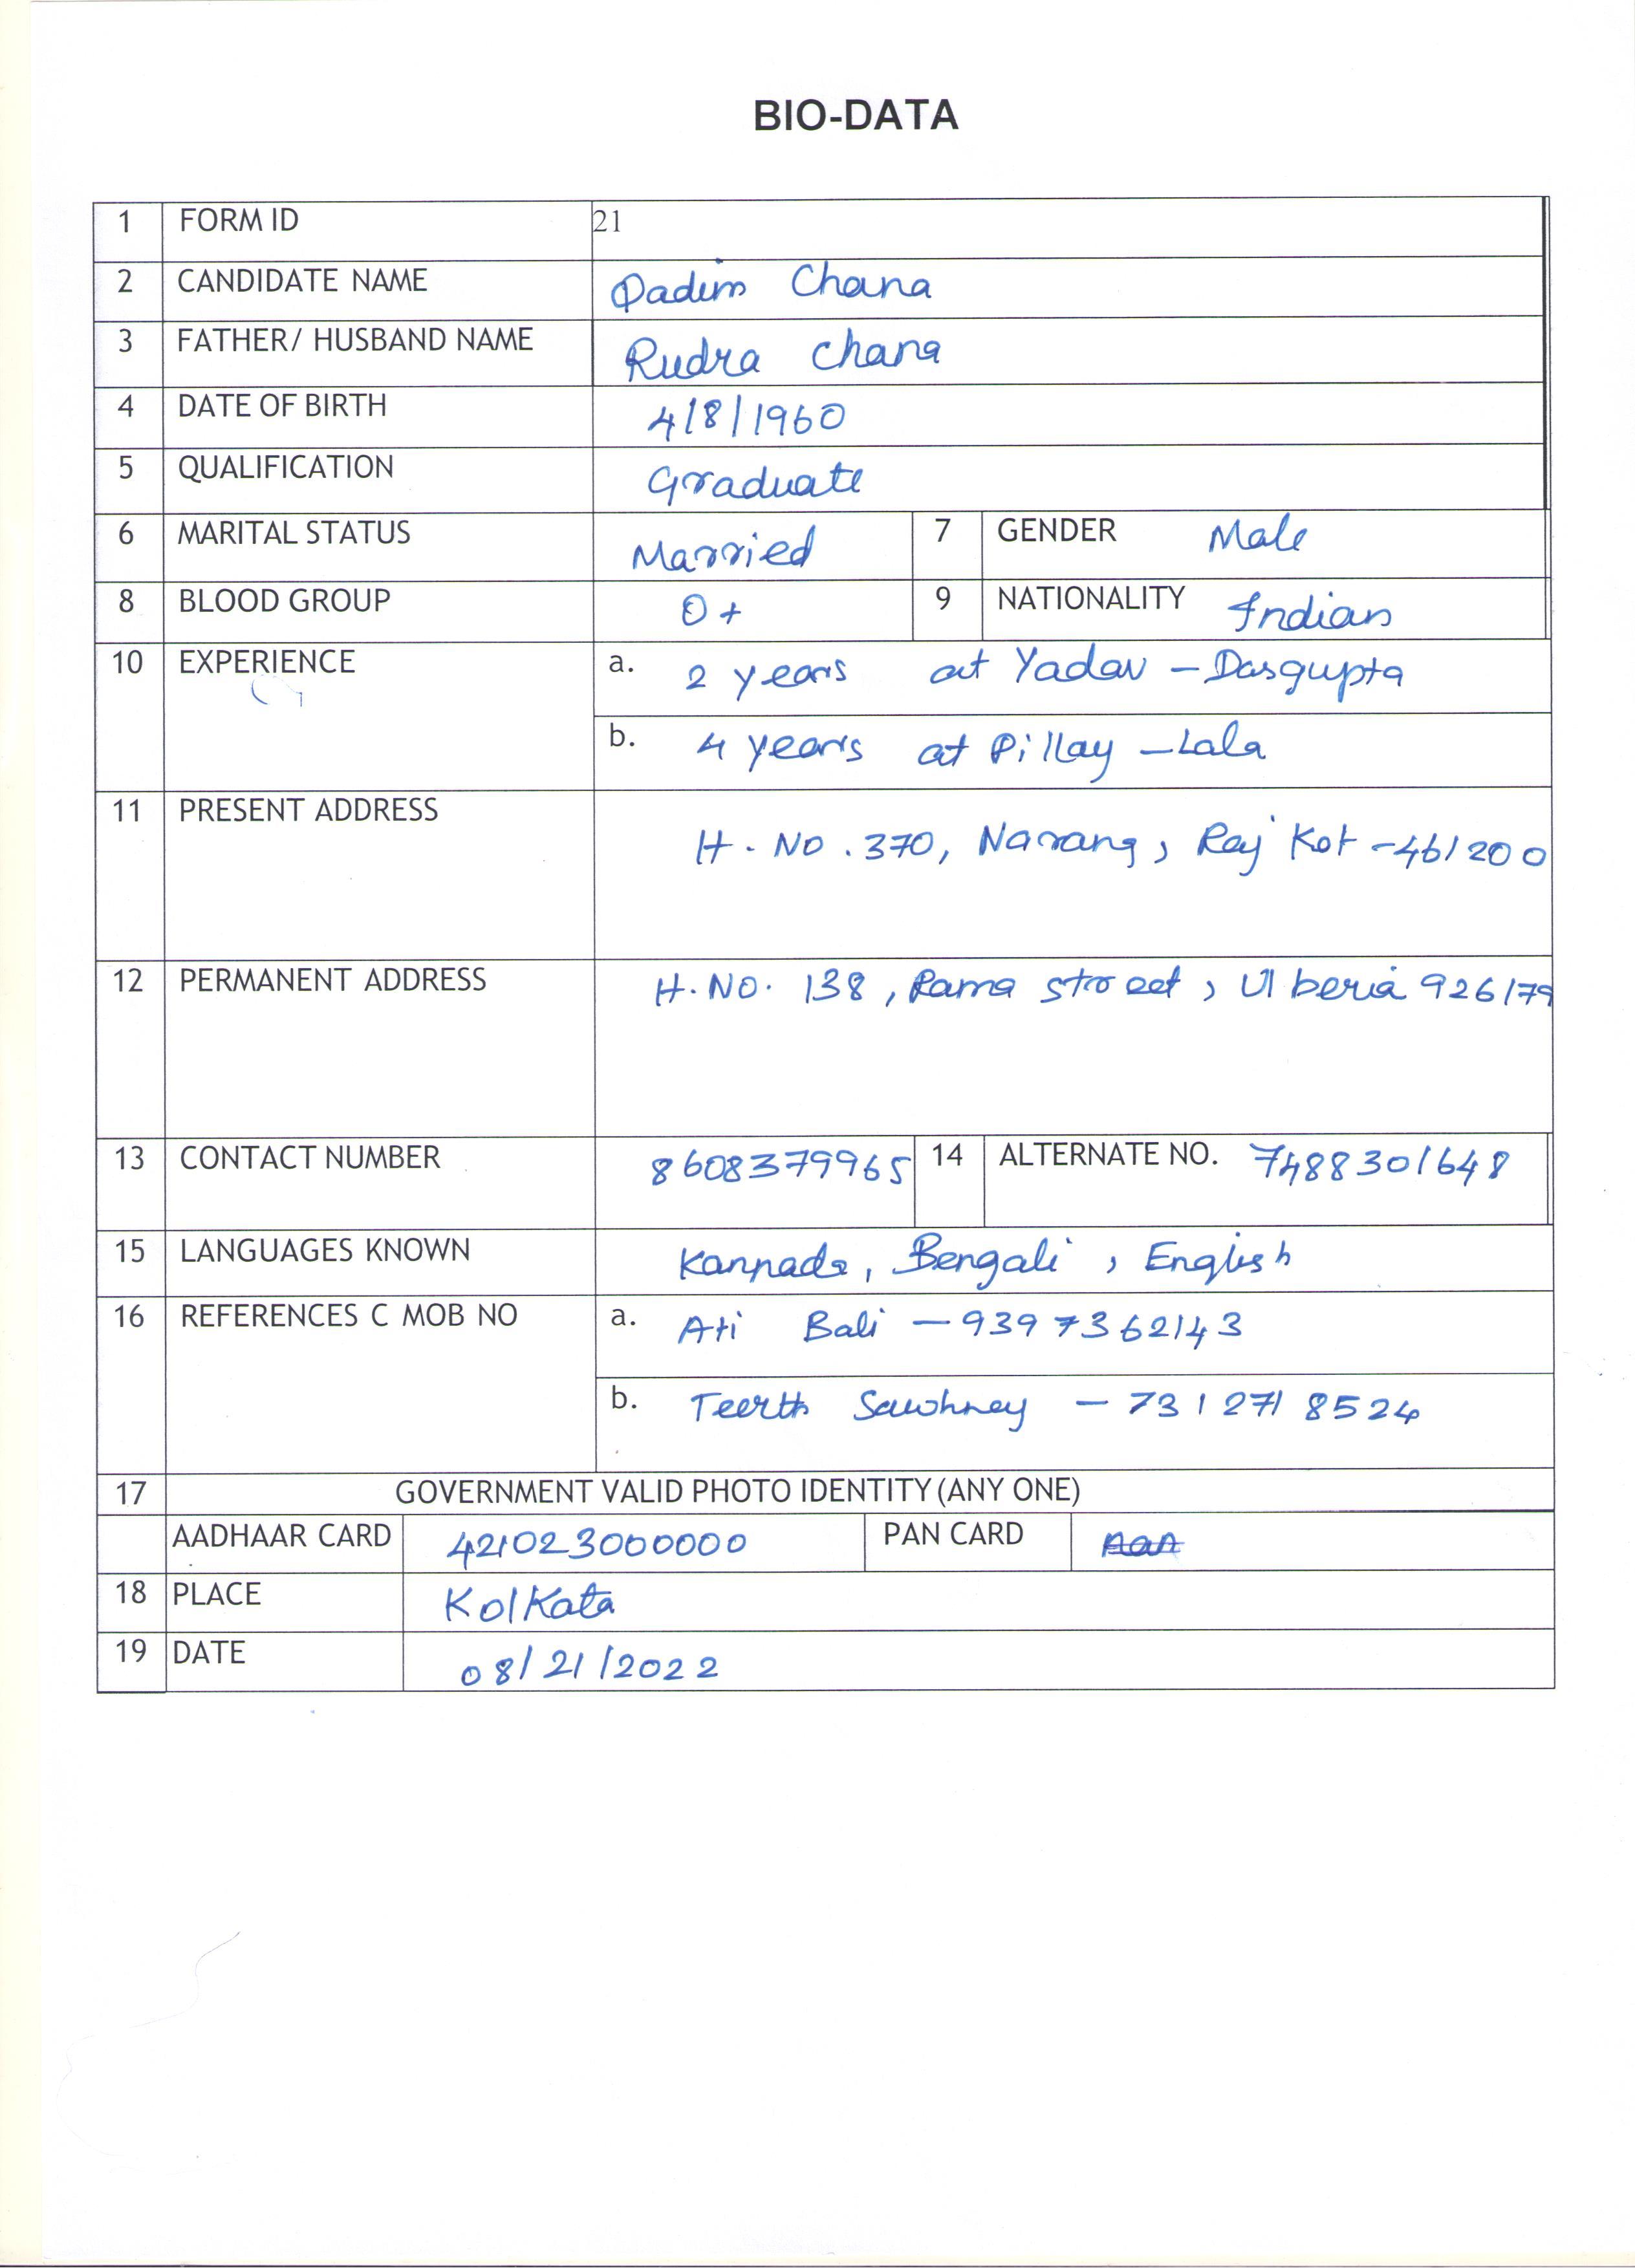 BIO-DATA
1 FORM ID 21
2 CANDIDATE NAME Qadim Chana
3 FATHER/ HUSBAND NAME Rudra Chana
4 DATE OF BIRTH 4/8/1960
5 QUALIFICATION Graduate
6 MARITAL STATUS Married 7 GENDER Male
8 BLOOD GROUP O+ 9 NATIONALITY Indian
10 EXPERIENCE a. 2 years at Yadav - Dasgupta
b. 4 years at Pillay - Lala
11 PRESENT ADDRESS H. No. 370, Narang, Rajkot - 461200
12 PERMANENT ADDRESS H. No. 138, Rama street, Ulberia 926179
13 CONTACT NUMBER 8608379965 14 ALTERNATE NO. 7488301648
15 LANGUAGES KNOWN Kannada, Bengali, English
16 REFERENCES C MOB NO a. Ati Bali - 9397362143
b. Teerth Sawhney - 7312718524
17 GOVERNMENT VALID PHOTO IDENTITY (ANY ONE)
AADHAAR CARD 421023000000 PAN CARD
18 PLACE Kolkata
19 DATE 08/21/2022